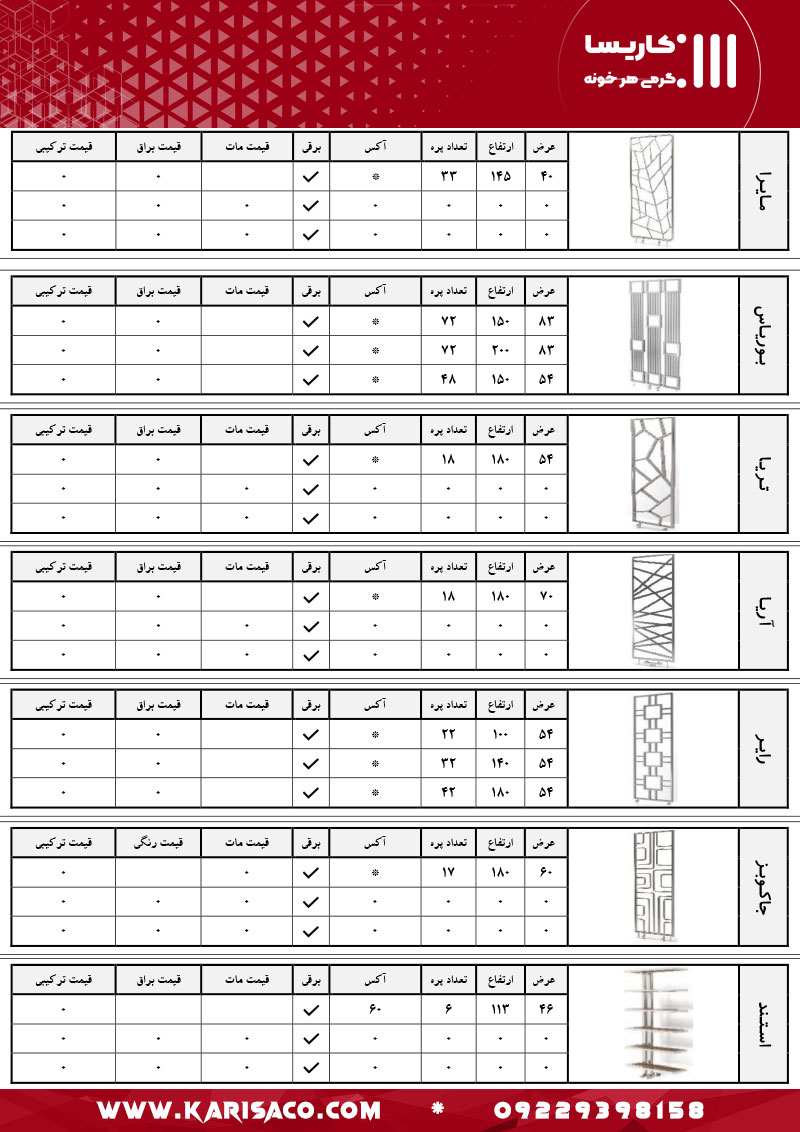 کاریسا
گرمی هر خونه
مایرا
عرض ارتفاع تعداد پره آکس برقی قیمت مات قیمت براق قیمت ترکیبی
۴۰ ۱۴۵ ۳۳ * ✓ ۰ ۰
۰ ۰ ۰ ۰ ✓ ۰ ۰ ۰
۰ ۰ ۰ ۰ ✓ ۰ ۰ ۰
بوریاس
عرض ارتفاع تعداد پره آکس برقی قیمت مات قیمت براق قیمت ترکیبی
۸۳ ۱۵۰ ۷۲ * ✓ ۰ ۰
۸۳ ۲۰۰ ۷۲ * ✓ ۰ ۰
۵۴ ۱۵۰ ۴۸ * ✓ ۰ ۰
تریا
عرض ارتفاع تعداد پره آکس برقی قیمت مات قیمت براق قیمت ترکیبی
۵۴ ۱۸۰ ۱۸ * ✓ ۰ ۰
۰ ۰ ۰ ۰ ✓ ۰ ۰ ۰
۰ ۰ ۰ ۰ ✓ ۰ ۰ ۰
آریا
عرض ارتفاع تعداد پره آکس برقی قیمت مات قیمت براق قیمت ترکیبی
۷۰ ۱۸۰ ۱۸ * ✓ ۰ ۰
۰ ۰ ۰ ۰ ✓ ۰ ۰ ۰
۰ ۰ ۰ ۰ ✓ ۰ ۰ ۰
رایر
عرض ارتفاع تعداد پره آکس برقی قیمت مات قیمت براق قیمت ترکیبی
۵۴ ۱۰۰ ۲۲ * ✓ ۰ ۰
۵۴ ۱۴۰ ۳۲ * ✓ ۰ ۰
۵۴ ۱۸۰ ۴۲ * ✓ ۰ ۰
جاکوبز
عرض ارتفاع تعداد پره آکس برقی قیمت مات قیمت رنگی قیمت ترکیبی
۶۰ ۱۸۰ ۱۷ * ✓ ۰ ۰
۰ ۰ ۰ ۰ ✓ ۰ ۰ ۰
۰ ۰ ۰ ۰ ✓ ۰ ۰ ۰
استند
عرض ارتفاع تعداد پره آکس برقی قیمت مات قیمت براق قیمت ترکیبی
۴۶ ۱۱۳ ۶ ۶۰ ✓ ۰
۰ ۰ ۰ ۰ ✓ ۰ ۰ ۰
۰ ۰ ۰ ۰ ✓ ۰ ۰ ۰
WWW.KARISACO.COM * 09229398158